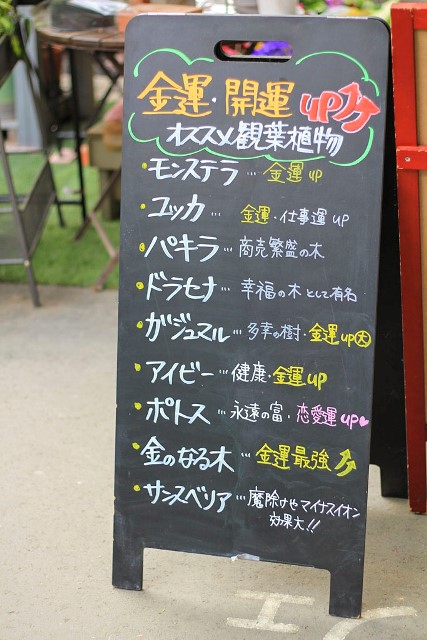 金運・開運 UP
オススメ観葉植物
・モンステラ … 金運 UP
・ユッカ … 金運・仕事運 UP
・パキラ … 商売繁盛の木
・ドラセナ … 幸福の木として有名
・ガジュマル … 多幸の樹・金運UP大
・アイビー … 健康・金運UP
・ポトス … 永遠の富・恋愛運UP
・金のなる木 … 金運最強
・サンスベリア … 魔除けやマイナスイオン
効果大!!